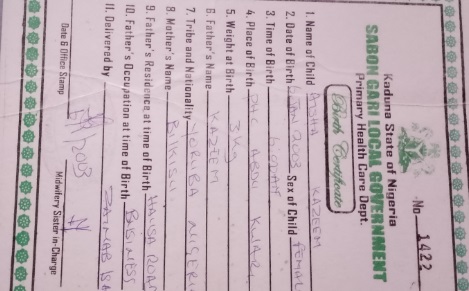 Kaduna State of Nigeria
No. 1422
SABON GARI LOCAL GOVERNMENT
Primary Health Care Dept.
Birth Certificate
1. Name of Child KAZEEM
2. Date of Birth JAN 2003 Sex of Child FEMAL
3. Time of Birth
4. Place of Birth PHC
5. Weight at Birth 3Kg
6. Father's Name KAZEEM
7. Tribe and Nationality YORUBA NIGERI
8. Mother's Name BILKISU
9. Father's Residence at time of Birth HAUSA ROAD
10. Father's Occupation at time of Birth BUSINESS
11. Delivered by ZAINAB ISA
Date & Office Stamp
Midwifery Sister in-Charge